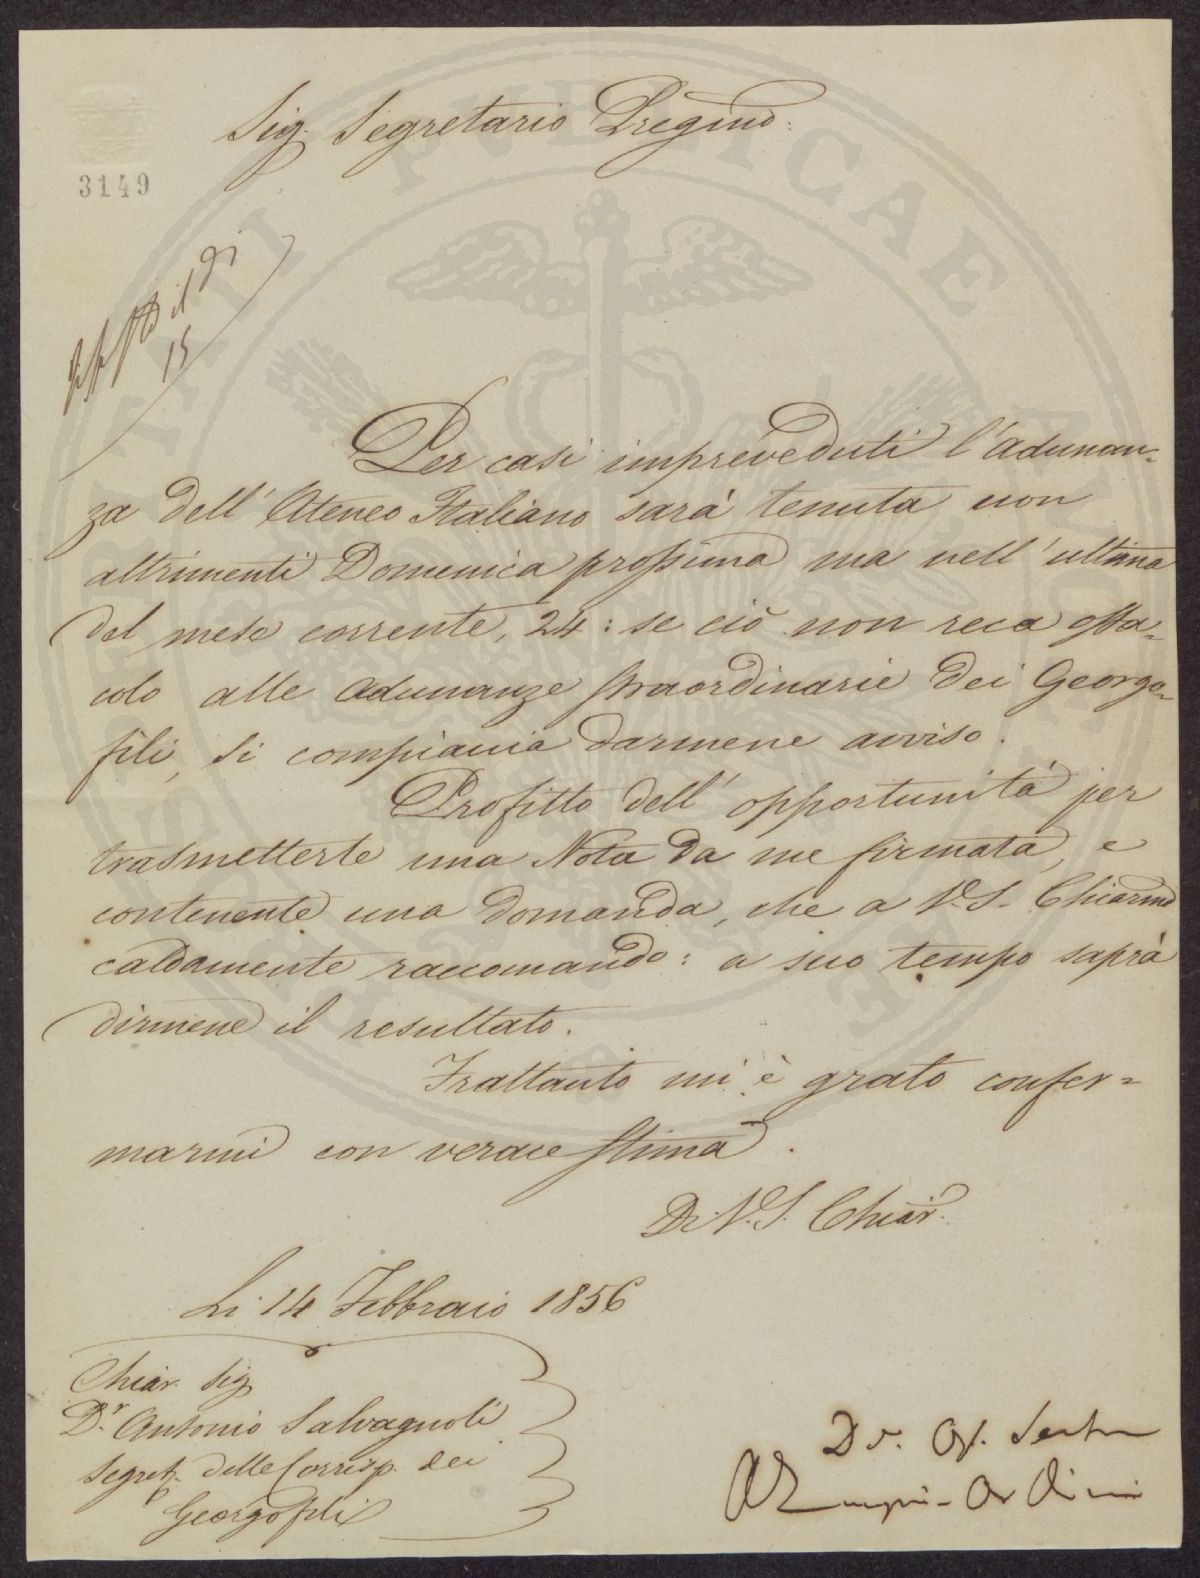 Sig. Segretario Pregmo:
3149
il di
15
Per casi impreveduti l'Adunan-
za dell'Ateneo Italiano sarà tenuta non
altrimenti Domenica prossima ma nell'ultima
del mese corrente, 24: se ciò non reca osta-
colo alle Adunanze straordinarie dei Georgo-
fili, si compiacia darmene avviso.
Profitto dell'opportunità per
trasmetterle una Nota da me firmata, e
contenente una domanda, che a V.S. Chiarmo
caldamente raccomando: a suo tempo saprà
dirmene il resultato.
Frattanto mi è grato confer=
marmi con verace stima.
Di V.S. Chiar.
Li 14 Febbraio 1856
Chiar. Sig.
Dr. Antonio Salvagnoli
Segret. delle Corrisp. dei
Georgofili